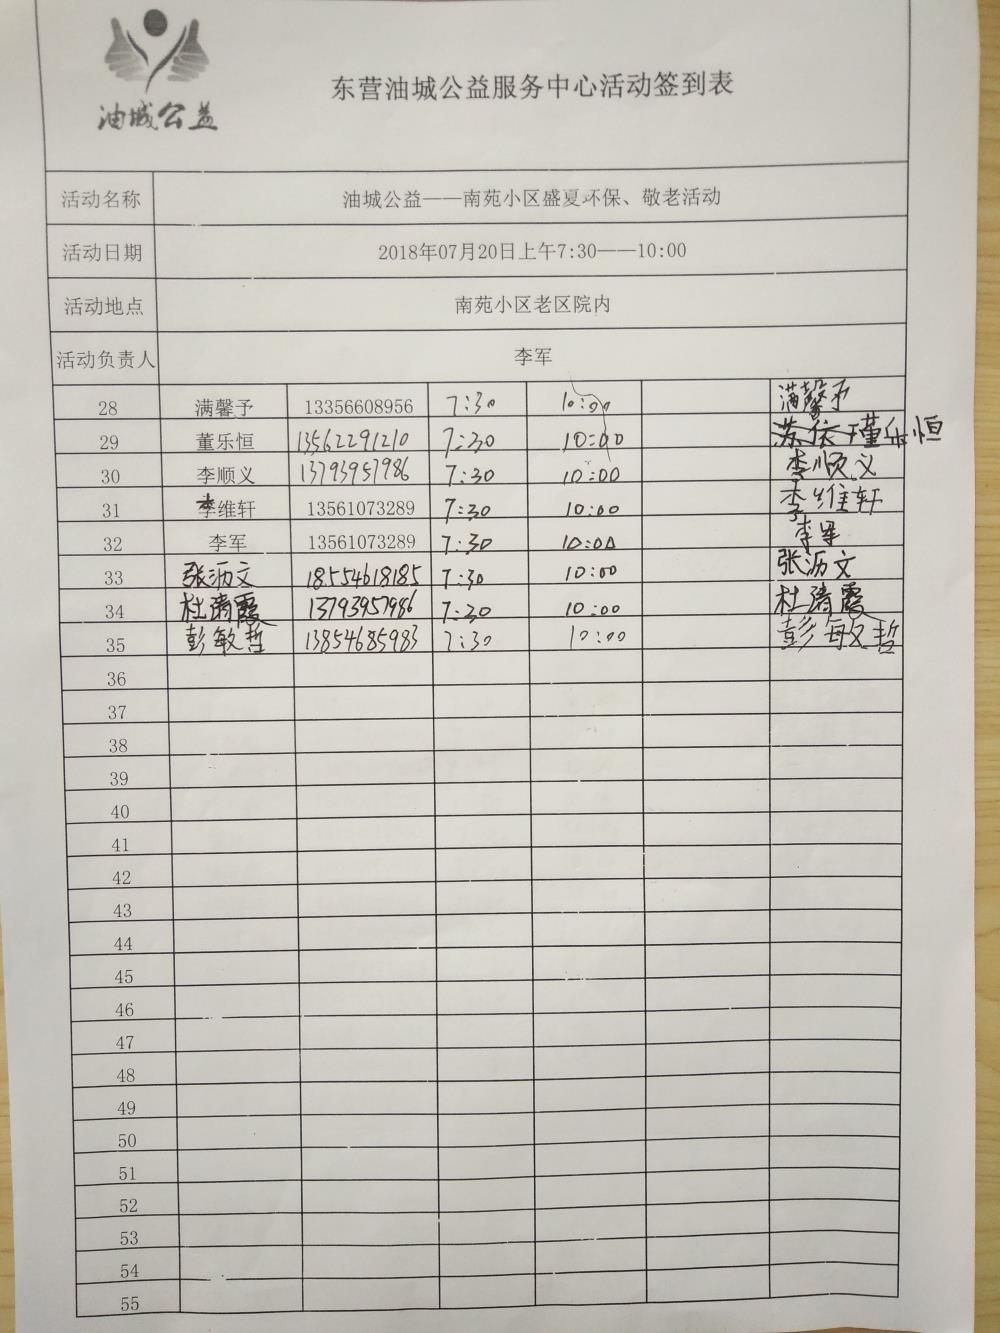 油城公益
东营油城公益服务中心活动签到表
活动名称 油城公益——南苑小区盛夏环保、敬老活动
活动日期 2018年07月20日上午7:30——10:00
活动地点 南苑小区老区院内
活动负责人 李军
28 满馨予 13356608956 7:30 10:00 满馨予
29 董乐恒 13562291210 7:30 10:00 苏依瑾乐恒
30 李顺义 13793957986 7:30 10:00 李顺义
31 李维轩 13561073289 7:30 10:00 李维轩
32 李军 13561073289 7:30 10:00 李军
33 张沥文 18554618185 7:30 10:00 张沥文
34 杜清霞 13793957986 7:30 10:00 杜清霞
35 彭敏哲 13854685983 7:30 10:00 彭敏哲
36
37
38
39
40
41
42
43
44
45
46
47
48
49
50
51
52
53
54
55